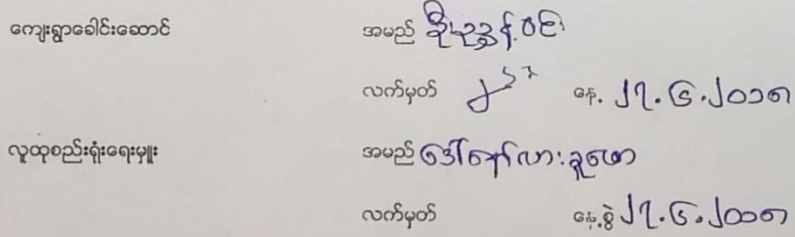 ကျေးရွာခေါင်းဆောင် အမည် ဦးညွန့်ဝင်း
လက်မှတ် နေ့. ၂၇.၆.၂၀၁၈
လူထုစည်းရုံးရေးမှူး အမည် ဒေါ်နော်လား
လက်မှတ် နေ့စွဲ ၂၇.၆.၂၀၁၈